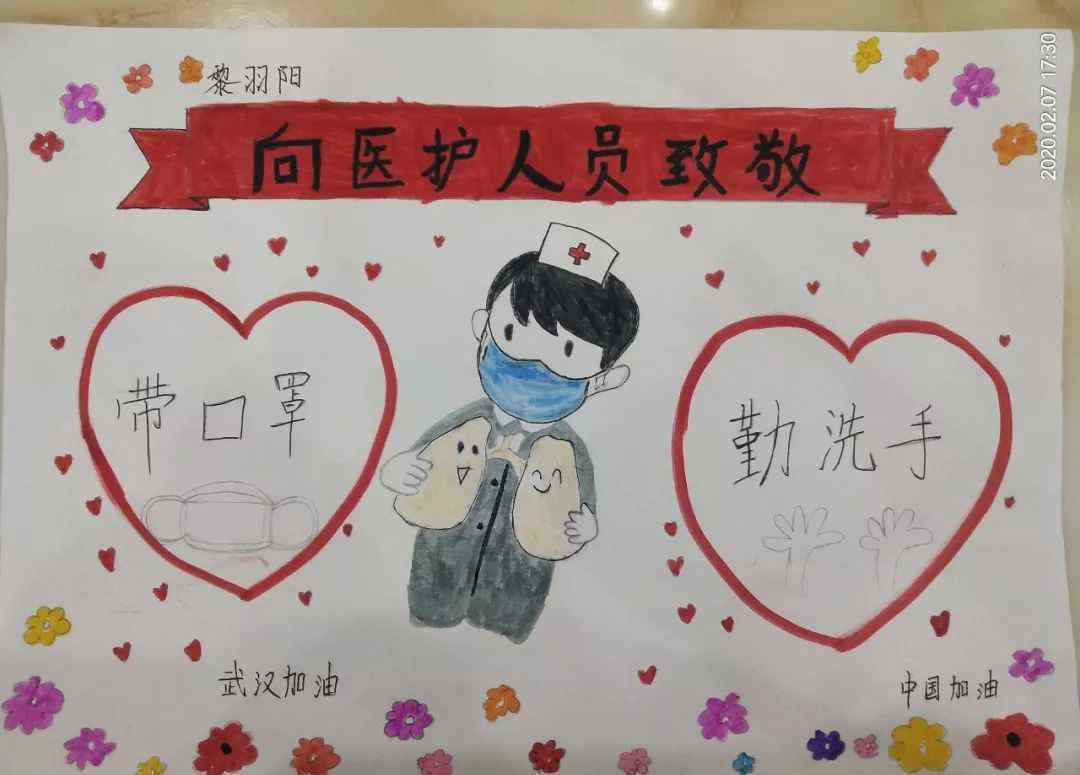 黎羽阳
2020.02.07 17:30
向医护人员致敬
带口罩
勤洗手
武汉加油
中国加油